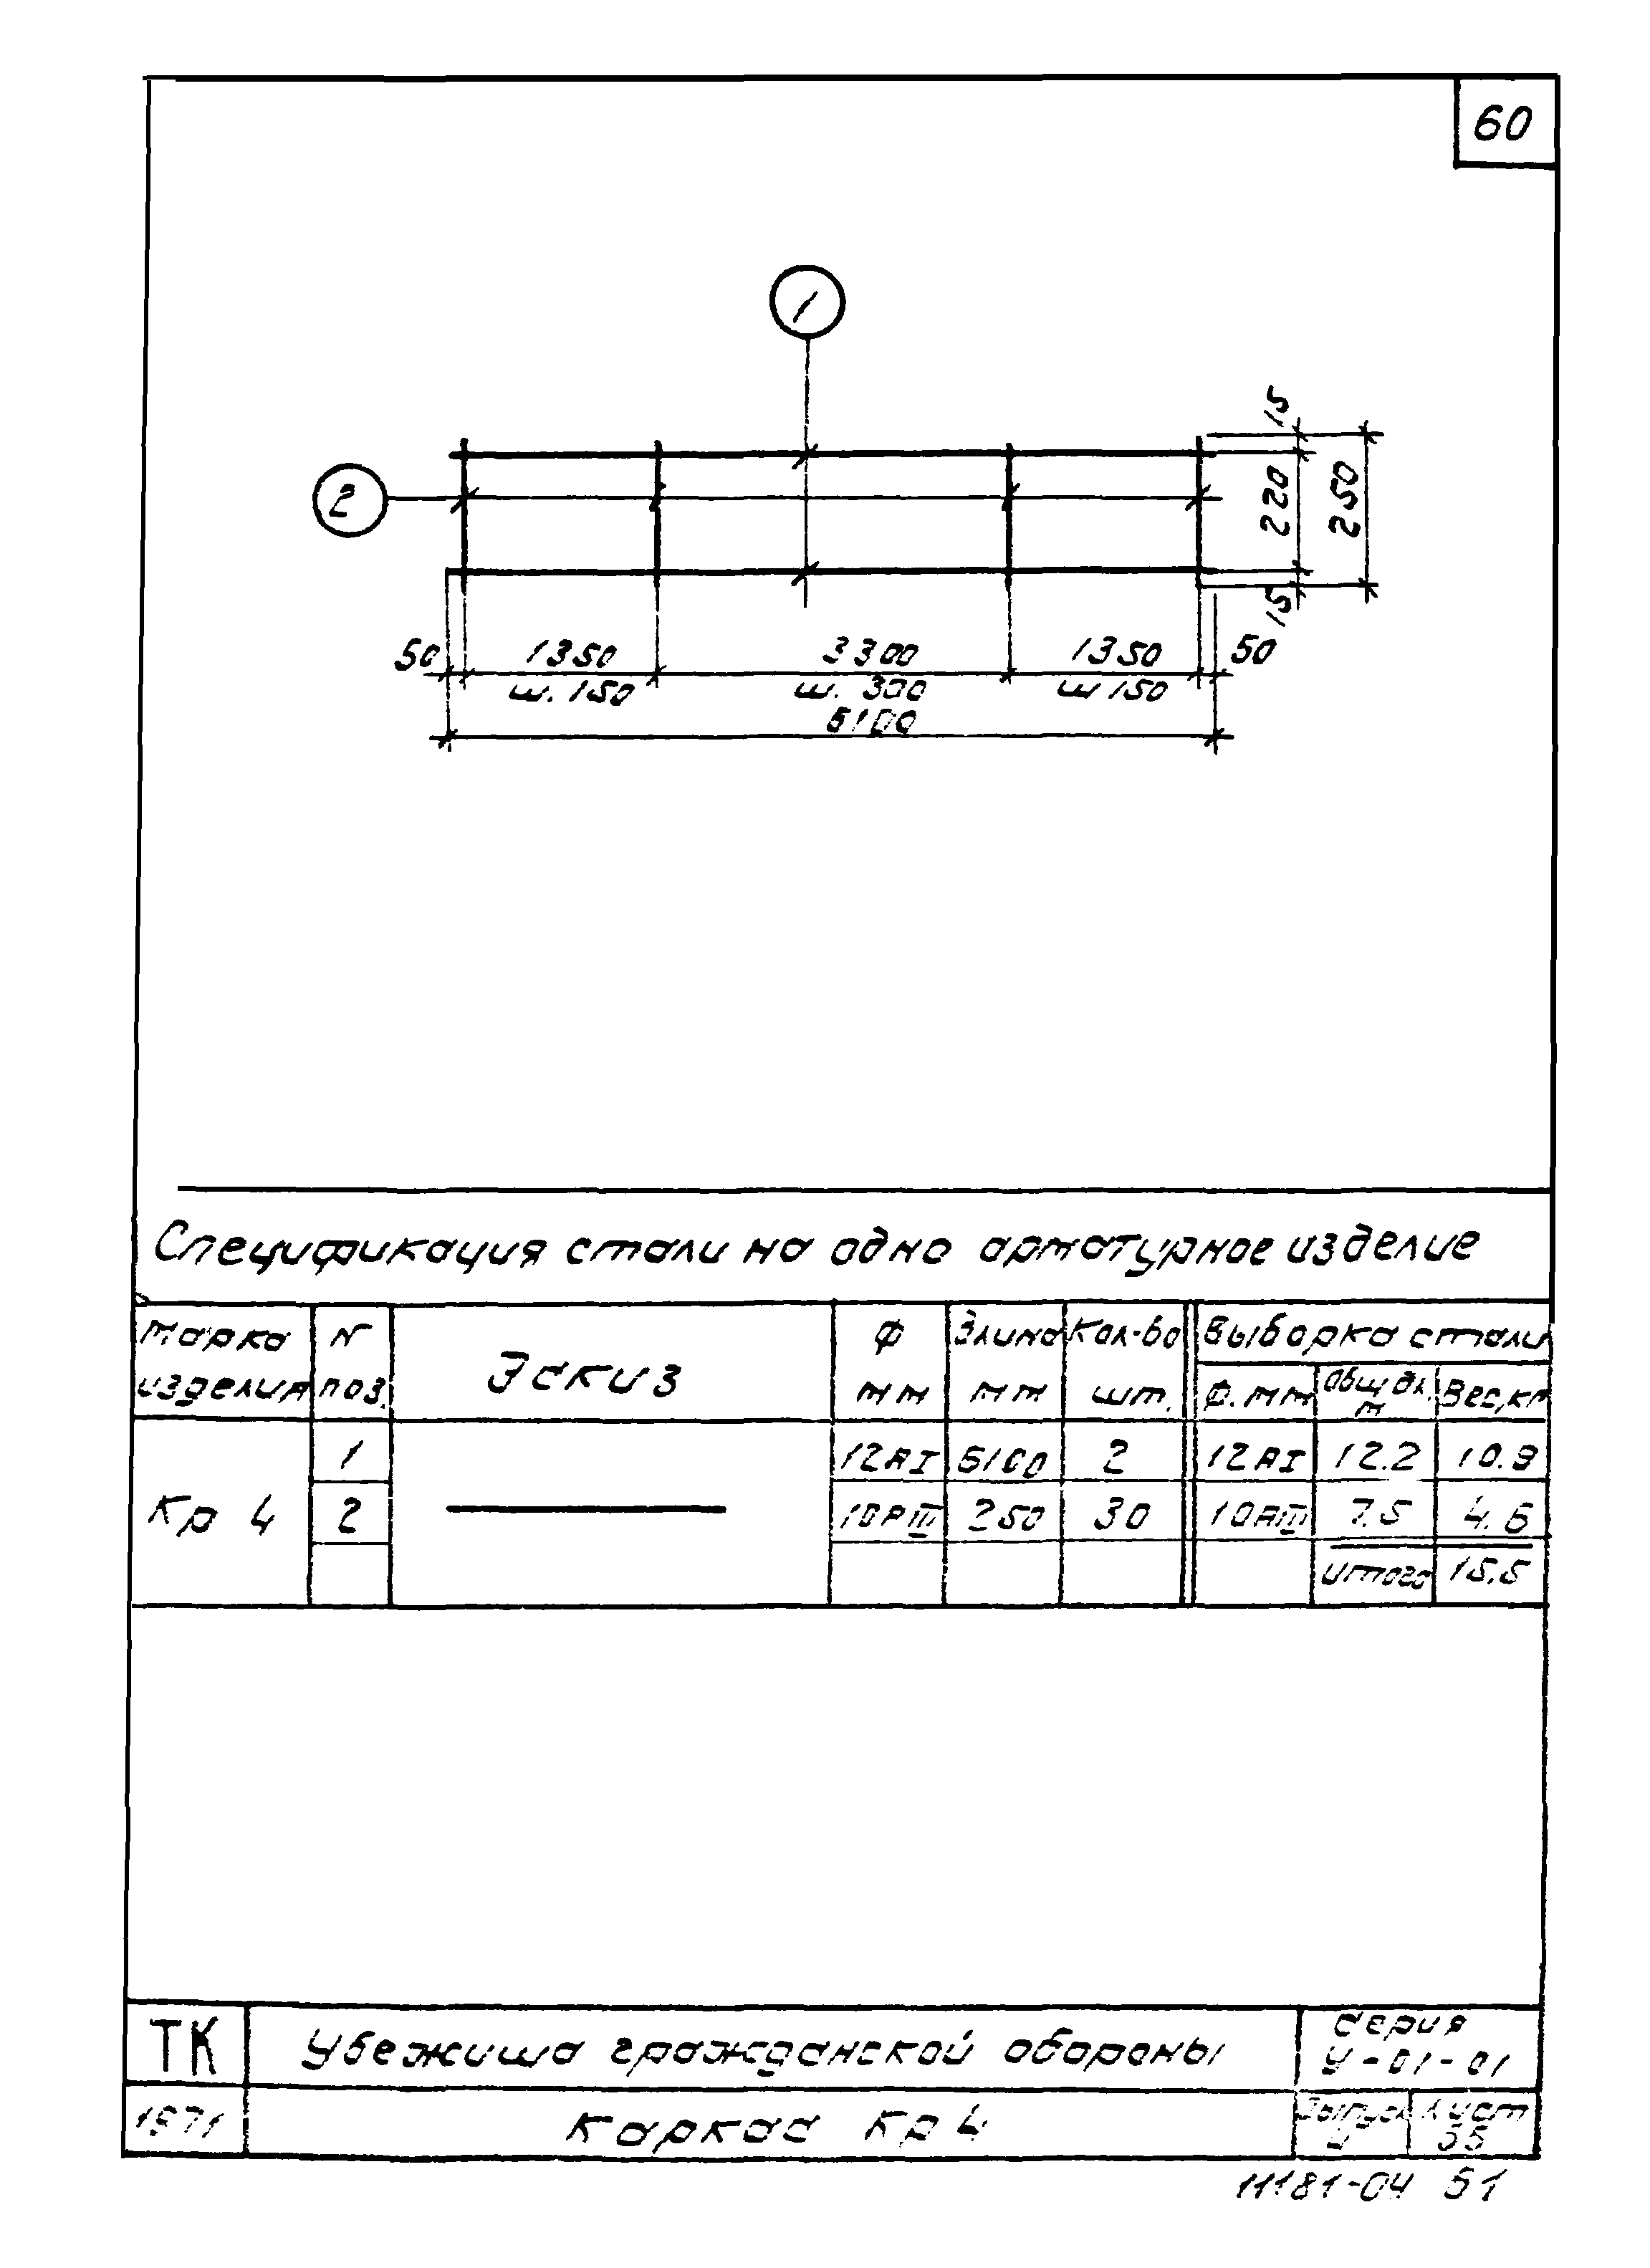 60
1
15
2
220
250
15
50 1350 3300 1350 50
ш. 150 ш. 300 ш 150
6100
Спецификация стали на одно арматурное изделие
Марка изделия N поз. Эскиз Ф мм Длина мм Кол-во шт. Выборка стали
Ф. мм Общ дл. м Вес, кг
Кр 4
1 12АI 6100 2 12АI 12.2 10.9
2 10АIII 250 30 10АIII 7.5 4.6
итого 15.5
ТК Убежища гражданской обороны Серия У-01-01
1971 Каркас Кр 4 Выпуск 4 Лист
11181-04 61